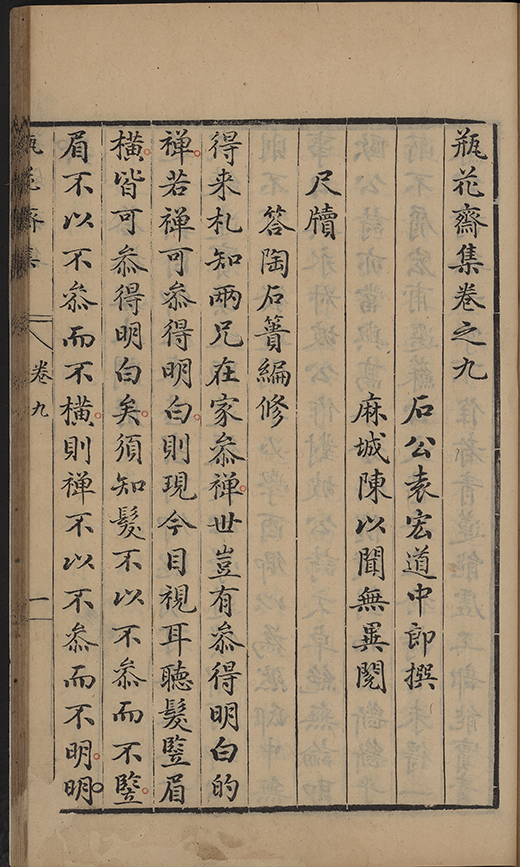 瓶花齋集卷之九
石公袁宏道中郎撰
麻城陳以聞無異閱
尺牘
答陶石簣編修
得来札知兩兄在家叅禅世豈有叅得明白的
禅若禅可叅得明白則現今目視耳聽髮豎眉
橫皆可叅得明白矣須知髮不以不叅而不豎
眉不以不叅而不橫則禅不以不叅而不明明
瓶花齋集
卷九
一